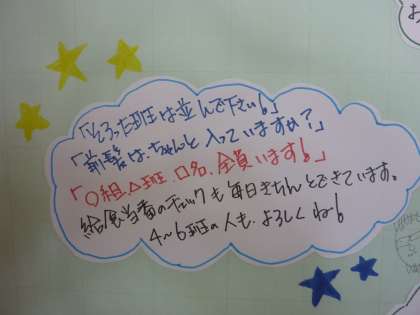 「そろった班は並んで下さい!」
「前髪は、ちゃんと入っていますか?」
「〇組△班、口名、全員います!」
給食当番のチェックも毎日きちんとできています。
4〜6班の人も、よろしくね!